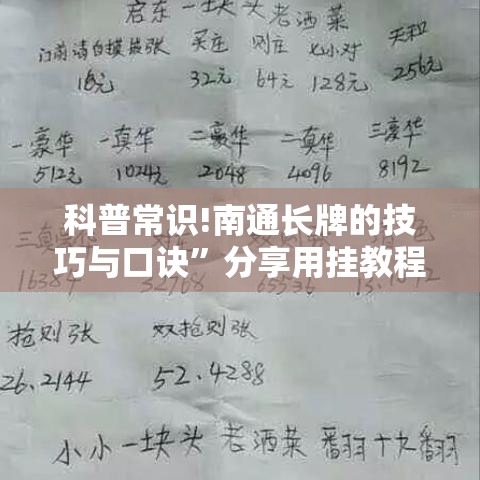 启东一块头老洒菜
门前清白摸 张 买庄 则庄 七小对 天和
16元 32元 64元 128元 256元
一豪华 一真华 二豪华 二真华 三豪华
512元 1024元 2048 4096 8192
科普常识!南通长牌的技
巧与口诀”分享用挂教程
抢则张 双抢则张
26.2144 52.4288
小小一块头 老洒菜 翻翻十九翻